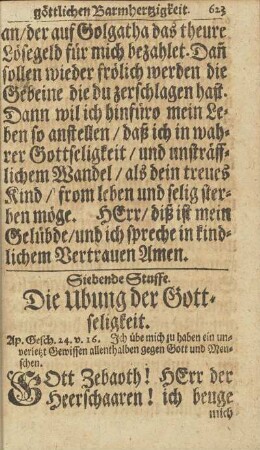 göttlichen Barmhertzigkeit. 623
an/der auf Golgatha das theure
Lösegeld für mich bezahlet. Dañ
sollen wieder frölich werden die
Gebeine die du zerschlagen hast.
Dann wil ich hinfüro mein Le-
ben so anstellen / daß ich in wah-
rer Gottseligkeit / und unsträff-
lichem Wandel / als dein treues
Kind / from leben und selig ster-
ben möge. HErr / diß ist mein
Gelübde/und ich spreche in kind-
lichem Vertrauen Amen.
Siebende Stuffe.
Die Ubung der Gott-
seligkeit.
Ap. Gesch. 24. v. 16. Ich übe mich zu haben ein un-
verletzt Gewissen allenthalben gegen Gott und Men-
schen.
GOtt Zebaoth! HErr der
Heerschaaren! ich beuge
mich